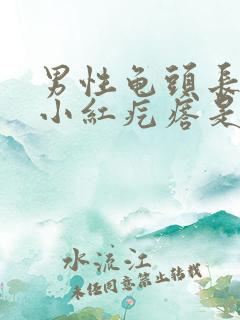 男性龟頭長
小紅疙瘩是
水流江
未经同意禁止转载